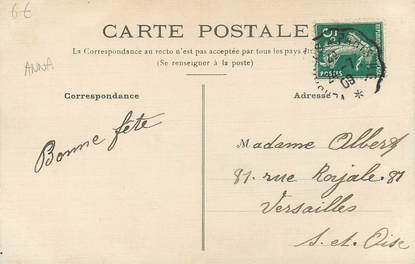 6€
ANNA
CARTE POSTALE
La Correspondance au recto n'est pas acceptée par tous les pays
(Se renseigner à la poste)
Correspondance
Adresse
5
POSTES
Bonne fête
Madame Albert
81. rue Royale. 81
Versailles
S. et. Oise